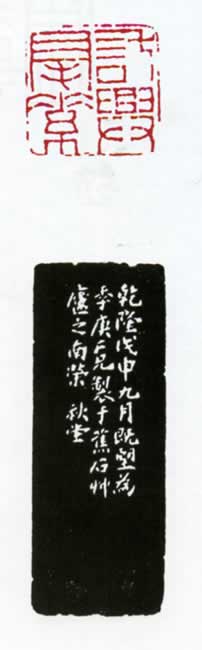 乾隆戊申九月既望為
季庚二兄製于蕉石艸
廬之南榮 秋堂